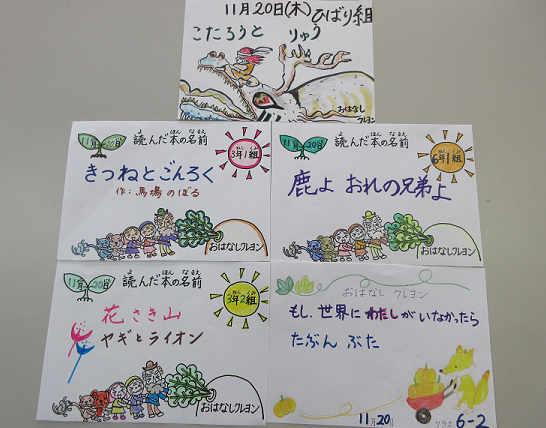 11月20日(木)ひばり組
こたろうと りゅう
おはなし
クレヨン
11月20日
読んだ本の名前
よ ほん なまえ
3年1組
きつねとごんろく
作:馬場のぼる
おはなしクレヨン
11月20日
読んだ本の名前
よ ほん なまえ
6年1組
鹿よ おれの兄弟よ
おはなしクレヨン
11月20日
読んだ本の名前
よ ほん なまえ
3年2組
花さき山
ヤギとライオン
おはなしクレヨン
おはなし クレヨン
もし、世界にわたしがいなかったら
たぶん ぶた
11月20日
クラス 6-2